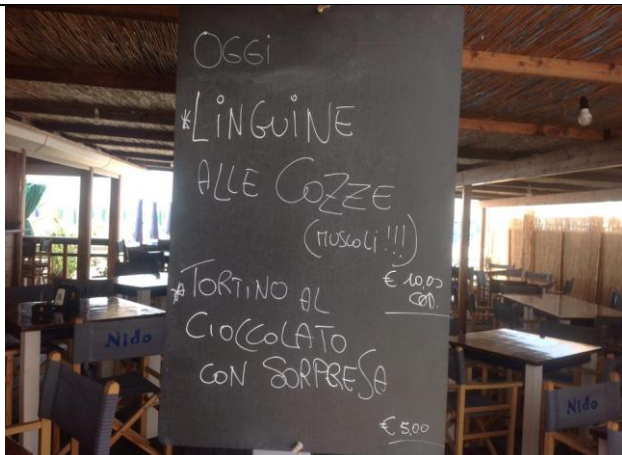 OGGI
*LINGUINE
ALLE COZZE
(MUSCOLI!!!)
€ 10,00
CAD.
*TORTINO AL
CIOCCOLATO
CON SORPRESA
€ 5,00
Nido
Nido